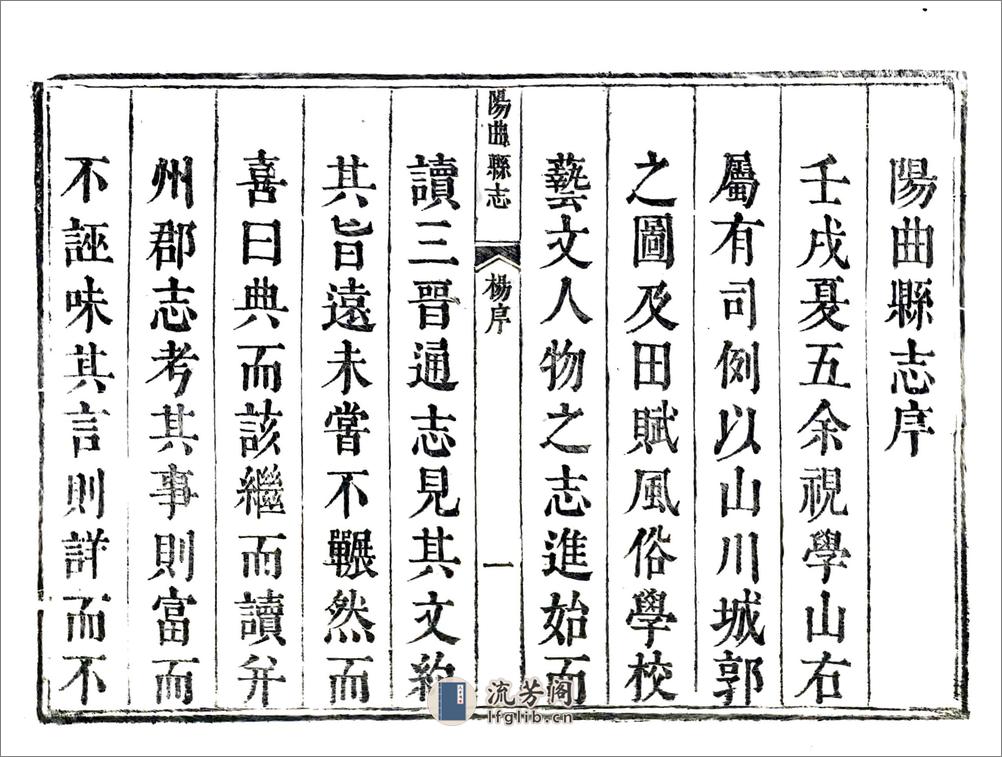 陽曲縣志序
壬戌夏五余視學山右
屬有司例以山川城郭
之圖及田賦風俗學校
藝文人物之志進始而
陽曲縣志 楊序 一
讀三晉通志見其文約
其旨遠未嘗不囅然而
喜曰典而該繼而讀弁
州郡志考其事則富而
不誣味其言則詳而不
流芳阁
lfglib.cn